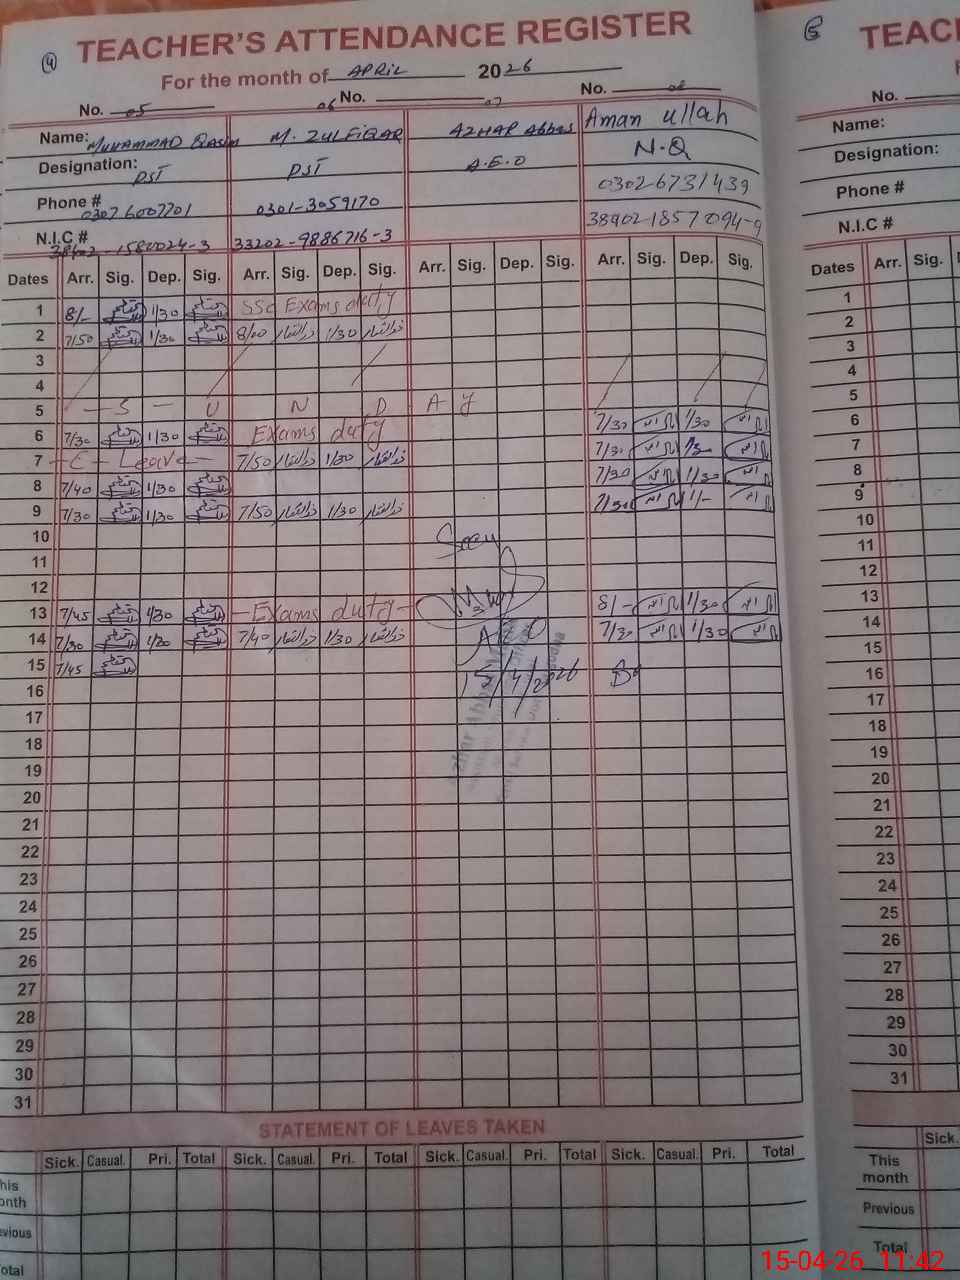 4
TEACHER'S ATTENDANCE REGISTER
For the month of APRIL 2026
No. 05 06 No. 07 No. 08
Name: MUHAMMAD QASIM M. ZULFIQAR AZHAR Abbas Aman ullah
Designation: PST PST A.E.O N.Q
Phone # 0307 6007701 0301-3059170 03026731439
N.I.C # 33202-9886716-3
Dates Arr. Sig. Dep. Sig. Arr. Sig. Dep. Sig. Arr. Sig. Dep. Sig. Arr. Sig. Dep. Sig.
1 8/- 1/30 SSC Exams duty
2 7/50 1/30 8/00 ذوالفقار 1/30 ذوالفقار
3
4
5 - S - U N D A Y
6 7/30 1/30 Exams duty 7/30 1/30
7 - C - Leave - 7/50 ذوالفقار 1/30 ذوالفقار 7/30 1/30
8 7/40 1/30 7/30 1/30
9 7/30 1/30 7/50 ذوالفقار 1/30 ذوالفقار 7/30 1/-
10 Seen
11
12
13 7/45 1/30 - Exams duty - 8/- 1/30
14 7/30 1/30 7/40 ذوالفقار 1/30 ذوالفقار AEO 7/30 1/30
15 7/45 15/4/2026
16
17
18
19
20
21
22
23
24
25
26
27
28
29
30
31
STATEMENT OF LEAVES TAKEN
Sick. Casual. Pri. Total Sick. Casual. Pri. Total Sick. Casual. Pri. Total Sick. Casual. Pri. Total
his
onth
evious
otal
5
TEAC
No.
Name:
Designation:
Phone #
N.I.C #
Dates Arr. Sig.
1
2
3
4
5
6
7
8
9
10
11
12
13
14
15
16
17
18
19
20
21
22
23
24
25
26
27
28
29
30
31
Sick.
This
month
Previous
Total
15-04-26 11:42